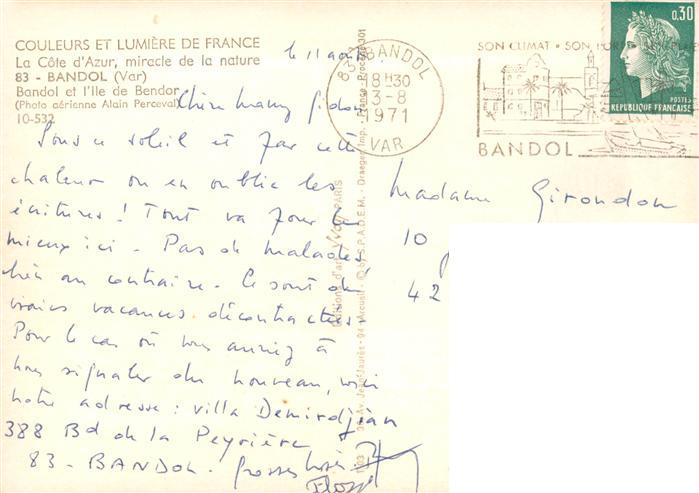 COULEURS ET LUMIÈRE DE FRANCE
La Côte d'Azur, miracle de la nature
83 - BANDOL (Var)
Bandol et l'Ile de Bendor
(Photo aérienne Alain Perceval)
10-532
le 11 août
Chère mamy Gidon,
Sous ce soleil et par cette
chaleur on en oublie les
écritures ! Tout va pour le
mieux ici. Pas de malades
bien au contraire. Ce sont de
vraies vacances décontractées.
Pour le cas où vous auriez à
nous signaler du nouveau, voici
notre adresse : villa Demirdjian
388 Bd de la Peyrière
83 - BANDOL. Grosses bises.
83 BANDOL
18H30
13-8
1971
VAR
SON CLIMAT • SON PORT
BANDOL
0,30
POSTES
REPUBLIQUE FRANÇAISE
Madame Girondon
10
42
Editions d'art Yvon PARIS
Draeger Imp.
© by S.P.A.D.E.M.
Av. Jean-Jaurès - 94 - Arcueil